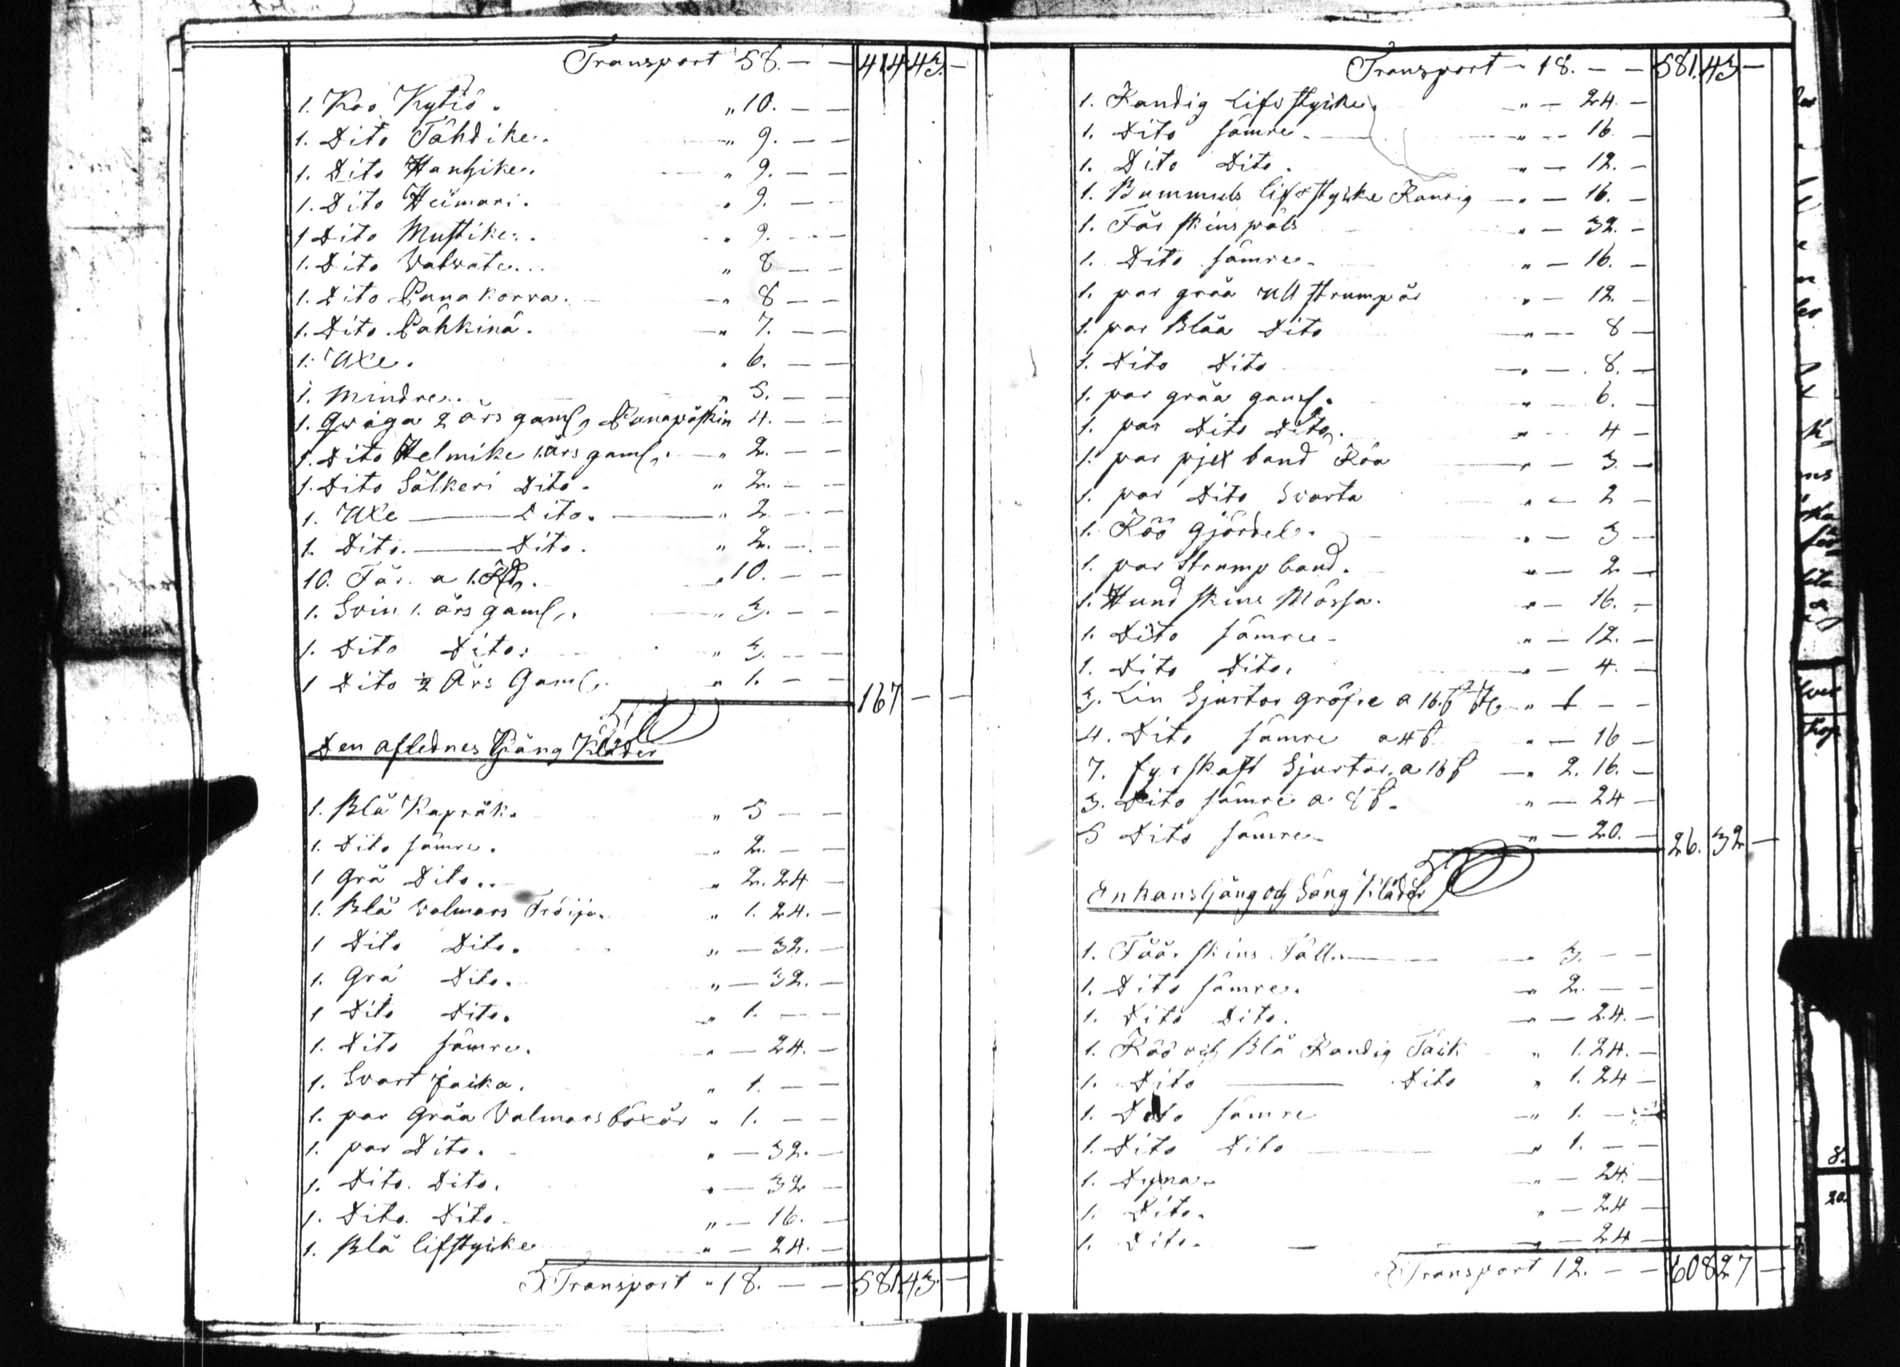 Transport 58. — — 414 43. —
1. Koo Kytiö. " 10. — —
1. Dito Tähdike. " 9. — —
1. Dito Hanhike. " 9. — —
1. Dito Heimari. " 9. — —
1 Dito Mustike. " 9. — —
1. Dito Valvate. " 8 — —
1. Dito Punakorva. " 8 — —
1. Dito Pähkinä. " 7. — —
1. Uxe. " 6. — —
1. mindre. " 5. — —
1. Qwiga 2 års gaml, Punapäskin 4. — —
1. Dito Helmike 1. års gaml. " 2. — —
1. Dito Sälkeri Dito. " 2. — —
1. Uxe — Dito. — " 2 — —
1. Dito. — Dito. " 2. — —
10. Får. a 1. Rd. " 10. — —
1. Svin 1. års gaml. " 3. — —
1. Dito Dito. " 3. — —
1 Dito ½ Års Gaml. " 1. — —
167 — —
Den aflednes Gång Kläder
1. Blå Kapråk. " 5 — —
1. Dito sämre. " 2. — —
1 Grå Dito. " 2. 24 —
1. Blå Valmars Tröija. " 1. 24. —
1 Dito Dito. " — 32. —
1. Grå Dito. " — 32. —
1 Dito Dito. " 1. — —
1. Dito sämre. " — 24. —
1. Svart jaika. " 1. — —
1. par gråa Valmars böxår " 1. — —
1. par Dito. " — 32. —
1. Dito. Dito. " — 32 —
1. Dito. Dito. " — 16. —
1. Blå lifstycke " — 24. —
Transport " 18. — — 581. 43. —
Transport " 18. — — 581. 43 —
1. Randig lifstycke. " — 24. —
1. Dito sämre. " — 16. —
1. Dito Dito. " — 12. —
1. Bummuls lifstycke Randig " — 16. —
1. Får skins päls " — 32. —
1. Dito sämre. " — 16. —
1. par gråa ull strumpår " — 12. —
1. par Blåa Dito " — 8 —
1. Dito Dito " — 8. —
1. par gråa gaml. " — 6. —
1. par Dito Dito. " — 4 —
1. par pjex band Röa " — 3. —
1. par Dito Svarta " — 2 —
1. Röö Gjördel. " — 3 —
1. par Strump band. " — 2 —
1. Hund skins Mössa. " — 16. —
1. Dito sämre " — 12. —
1. Dito Dito. " — 4. —
3. Lin Sjurtor gröfre a 16 ß " 1 — —
4. Dito sämre a 4 ß " — 16 —
7. fyrskaft Sjurtor a 16 ß " 2. 16. —
3. Dito sämre a 8 ß. " — 24 —
5 Dito sämre " — 20. —
26. 32 —
Enkans Gång och Säng Kläder
1. Fåår skins Fäll. " 3. — —
1. Dito sämre. " 2. — —
1. Dito Dito. " — 24. —
1. Röö och Blå Randig Täck " 1. 24. —
1. Dito — Dito " 1. 24 —
1. Dito sämre " 1. — —
1. Dito Dito " 1. — —
1. Dyna. " — 24. —
1. Dito. " — 24 —
1. Dito. " — 24 —
Transport 12. — — 608 27 —